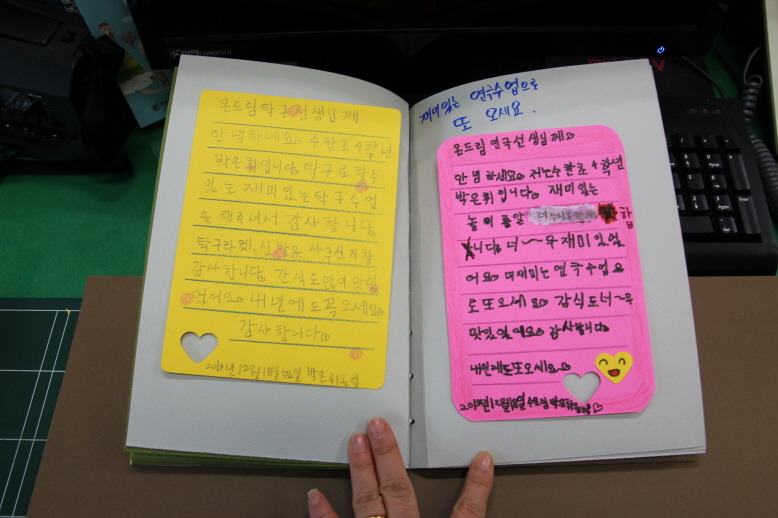 온드림탁구선생님께
안녕하세요 수한초4학년
박은휘입니다 탁구로할수
있는 재미있는탁구수업
을 해주셔서 감사합니다
탁구라켓, 신발을 사주신거참
감사합니다 간식도많이맛있
었어요 내년에도꼭오세요
감사합니다
2019년12월18일 박은휘올림
재미있는 연극수업으로
또 오세요.
온드림 연극선생님께
안녕하세요 저는수한초 4학년
박은휘입니다 재미있는
놀이
합
니다 너~무재미있었
어요 더재미는연극수업으
로또오세요 간식도너~무
맛있었어요 감사합니다
내년에도또오세요
2019년12월18일 박은휘올림